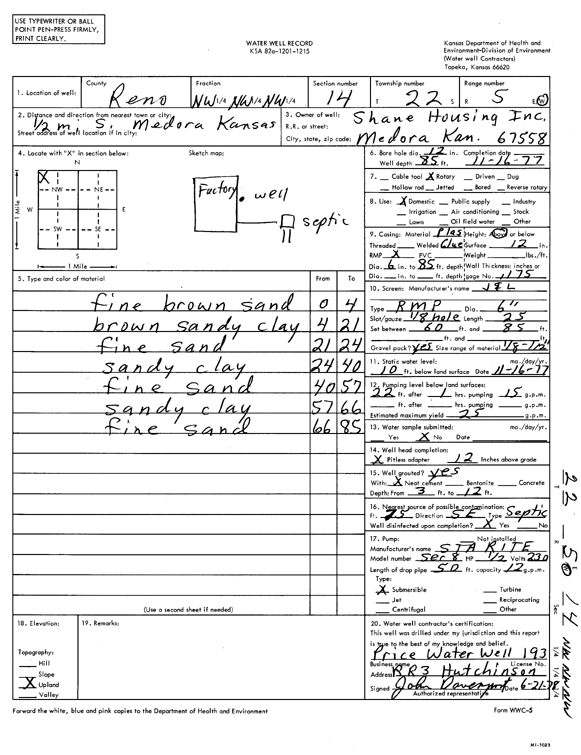 USE TYPEWRITER OR BALL
POINT PEN-PRESS FIRMLY,
PRINT CLEARLY.
WATER WELL RECORD
KSA 82a-1201-1215
Kansas Department of Health and
Environment-Division of Environment
(Water well Contractors)
Topeka, Kansas 66620
1. Location of well:
County
Reno
Fraction
NW 1/4 NW 1/4 NW 1/4
Section number
14
Township number
T 22 S
Range number
R 5 E/W
2. Distance and direction from nearest town or city:
1/2 mi S. Medora Kansas
Street address of well location if in city:
3. Owner of well: Shane Housing Inc.
R.R. or street:
City, state, zip code: Medora Kan. 67558
4. Locate with "X" in section below:
Sketch map:
N
X
NW NE
W E
SW SE
S
1 Mile
1 Mile
Factory
well
septic
5. Type and color of material
From To
fine brown sand 0 4
brown sandy clay 4 21
fine sand 21 24
sandy clay 24 40
fine sand 40 57
sandy clay 57 66
fine sand 66 85
(Use a second sheet if needed)
6. Bore hole dia. 12 in. Completion date
Well depth 85 ft. 11-16-77
7. Cable tool X Rotary Driven Dug
Hollow rod Jetted Bored Reverse rotary
8. Use: X Domestic Public supply Industry
Irrigation Air conditioning Stock
Lawn Oil field water Other
9. Casing: Material Plas Height: Above or below
Threaded Welded Glue Surface 12 in.
RMP X PVC Weight lbs./ft.
Dia. 6 in. to 85 ft. depth Wall Thickness: inches or
Dia. in. to ft. depth gage No. .175
10. Screen: Manufacturer's name
Type RMP Dia. 6"
Slot/gauze 1/8 hole Length 25
Set between 60 ft. and 85 ft.
ft. and ft.
Gravel pack? yes Size range of material 1/8-1/2"
11. Static water level: mo./day/yr.
10 ft. below land surface Date 11-16-77
12. Pumping level below land surfaces:
22 ft. after 1 hrs. pumping 15 g.p.m.
ft. after hrs. pumping g.p.m.
Estimated maximum yield 25 g.p.m.
13. Water sample submitted: mo./day/yr.
Yes X No Date
14. Well head completion:
X Pitless adapter 12 Inches above grade
15. Well grouted? yes
With: X Neat cement Bentonite Concrete
Depth: From 3 ft. to 12 ft.
16. Nearest source of possible contamination:
ft. 75 Direction SE Type Septic
Well disinfected upon completion? X Yes No
17. Pump: Not installed
Manufacturer's name STA RITE
Model number HP 1/2 Volts 230
Length of drop pipe 50 ft. capacity 12 g.p.m.
Type:
X Submersible Turbine
Jet Reciprocating
Centrifugal Other
18. Elevation:
19. Remarks:
Topography:
Hill
Slope
X Upland
Valley
20. Water well contractor's certification:
This well was drilled under my jurisdiction and this report
is true to the best of my knowledge and belief.
Price Water Well 193
Business name License No.
Address RR3 Hutchinson
Signed John Davenport Date 6-21-78
Authorized representative
Forward the white, blue and pink copies to the Department of Health and Environment
Form WWC-5
22 - 5W 14 NW NW NW
T R Sec 1/4 1/4 1/4